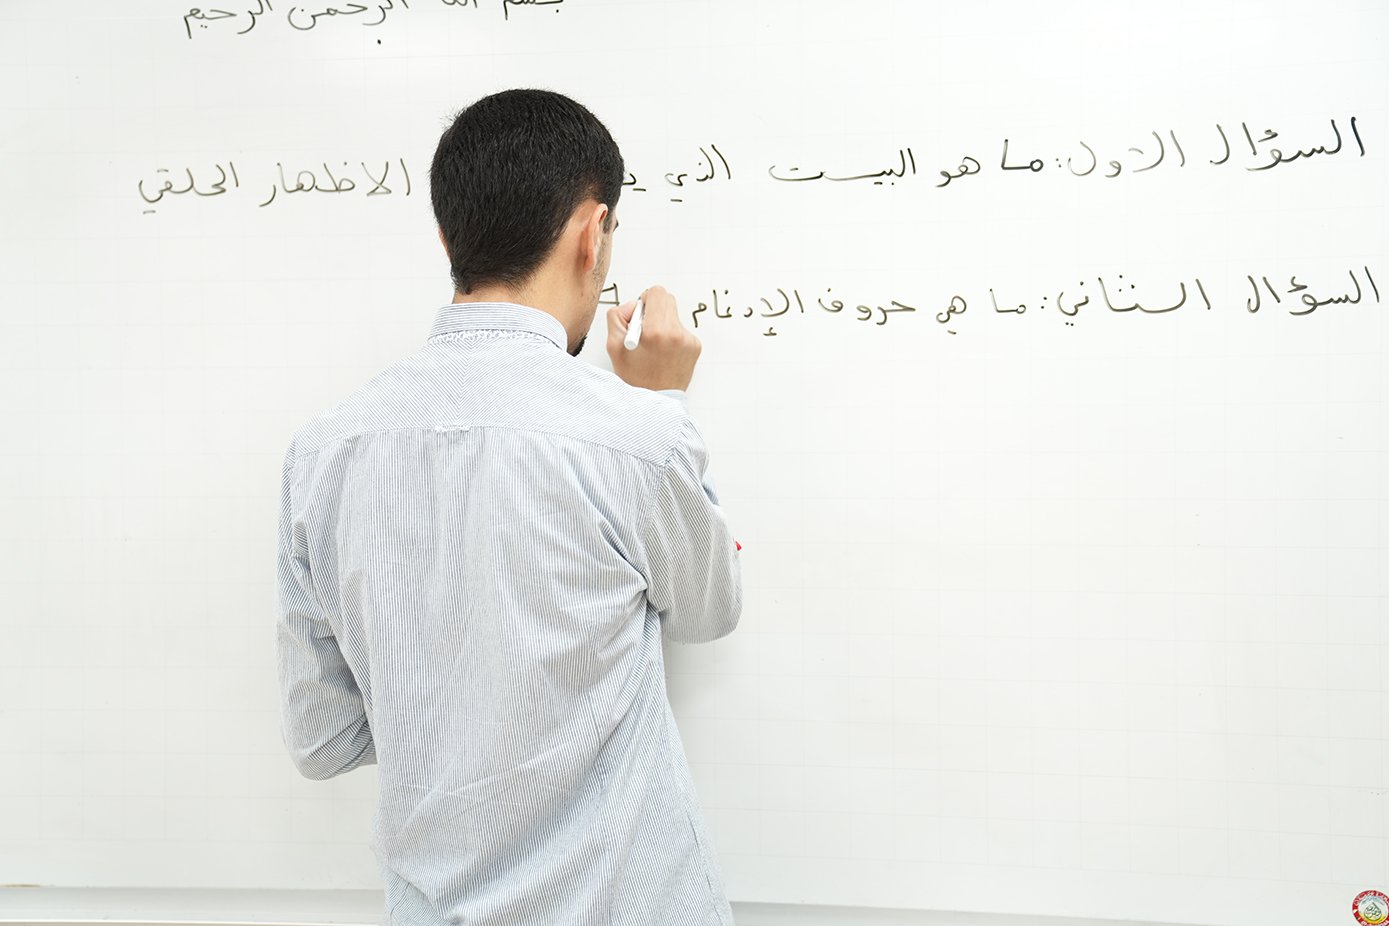 بسم الله الرحمن الرحيم
السؤال الاول: ما هو البيت الذي الاظهار الحلقي
السؤال الثاني: ما هي حروف الإدغام